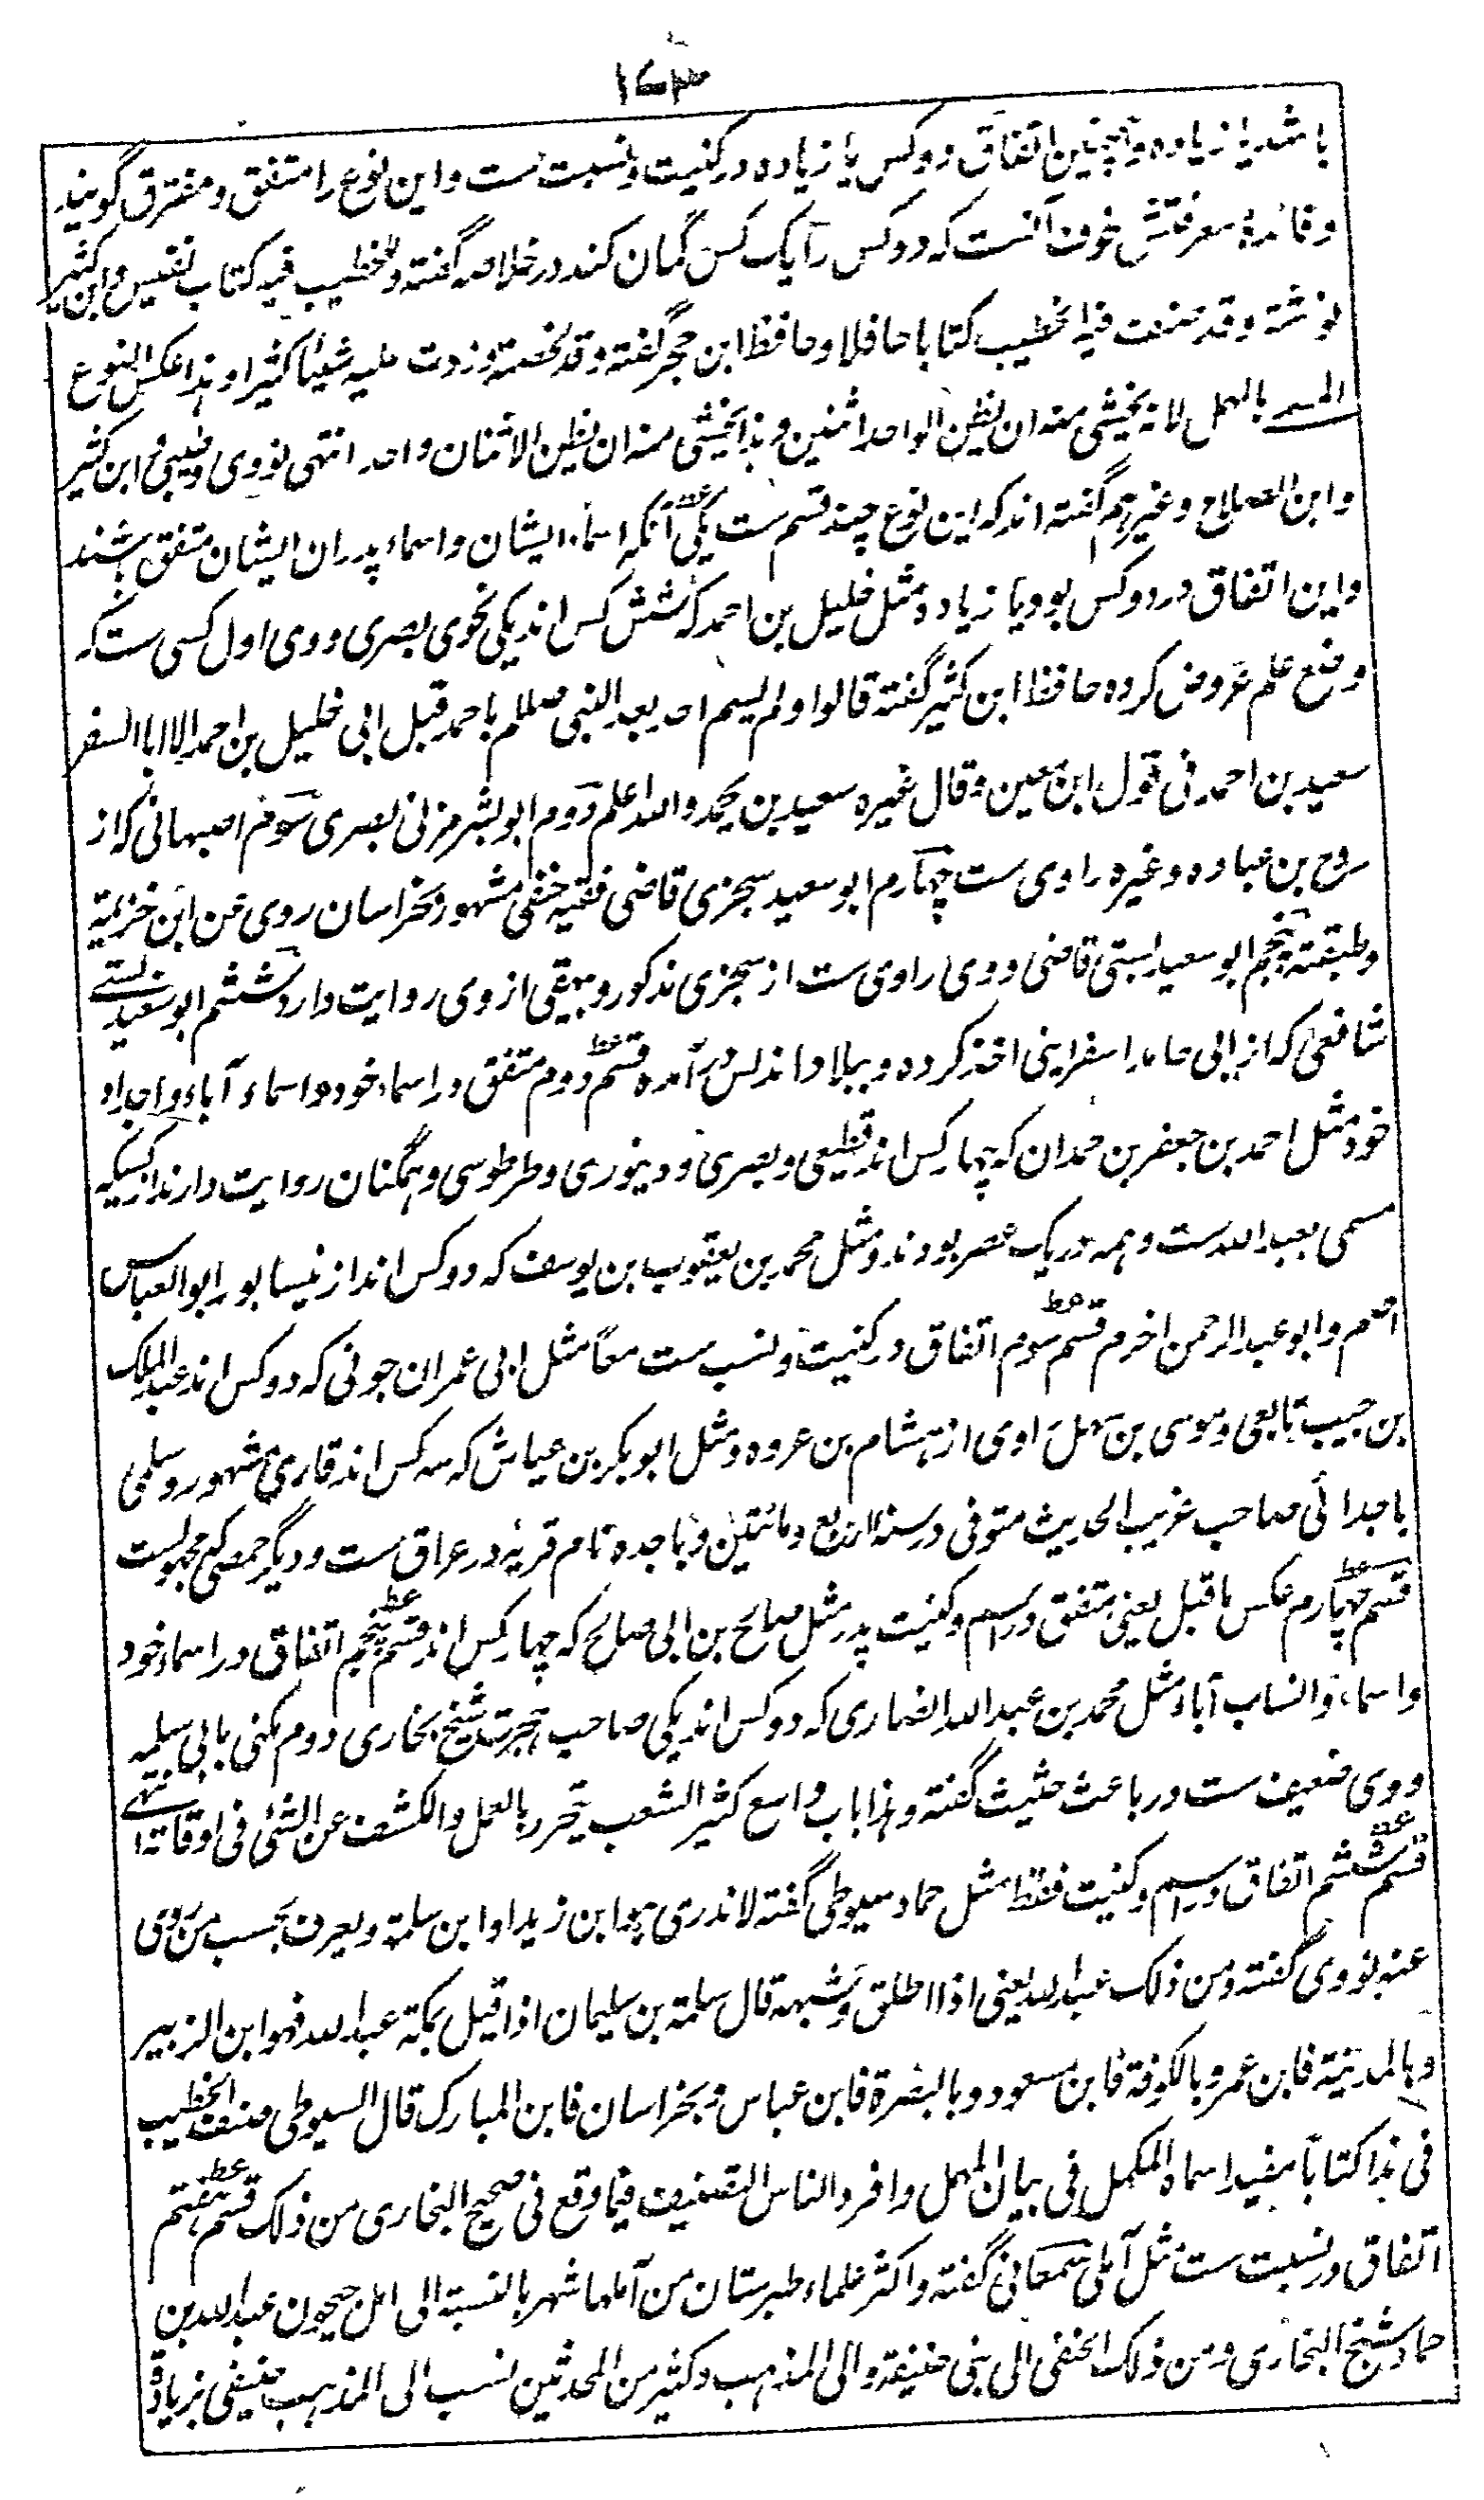 ۱۷۳
باشد یا زیاده و همچنین اتفاق دوکس یا زیاده در کنیت و نسبت ست و این نوع را متفق و مفترق گویند
و فائدهٔ معرفتش خوف آنست که دوکس را یک کس گمان کند در خلاصه گفته وللخطیب فیه کتاب نفیس و ابن کثیر
نوشته وقد صنف فیه الخطیب کتابا حافلا و حافظ ابن حجر گفته وقد لخصته وزدت علیه شیئا کثیرا وهذا عکس النوع
المسمی بالمهمل لانه یخشی منه ان یظن الواحد اثنین وهذا یخشی منه ان یظن الاثنان واحد انتهی نووی و طیبی و ابن کثیر
و ابن الصلاح و غیرهم گفته اند که این نوع چند قسم ست یکی آنکه اسماء ایشان و اسماء پدران ایشان متفق باشند
و این اتفاق در دوکس بود یا زیاده مثل خلیل بن احمد که شش کس اند یکی نحوی بصری و وی اول کسی ست که
وضع علم عروض کرده حافظ ابن کثیر گفته قالوا ولم یسم احد بعد النبی صللم باحمد قبل ابی خلیل بن احمد الا ابا السفر
سعید بن احمد فی قول ابن معین وقال غیره سعید بن یحمد والله اعلم دوم ابو بشر مزنی بصری سوم اصبهانی که از
روح بن عباده و غیره راوی ست چهارم ابو سعید سجزی قاضی فقیه حنفی مشهور بخراسان روی عن ابن خزیمة
وطبقته پنجم ابو سعید بستی قاضی و وی راوی ست از سجزی مذکور و بیهقی از وی روایت دارد ششم ابو سعید بستی
شافعی که از ابی حامد اسفراینی اخذ کرده و ببلاد اندلس در آمده قسم دوم متفق در اسماء خود و اسماء آباء و اجداد
خود مثل احمد بن جعفر بن حمدان که چهار کس اند قطیعی و بصری و دینوری و طرطوسی و همگنان روایت دارند از کسیکه
مسمی بعبد الله ست و همه در یک عصر بودند و مثل محمد بن یعقوب بن یوسف که دوکس اند از نیسابور ابو العباس
اصم و ابو عبد الرحمن اخرم قسم سوم اتفاق در کنیت و نسب ست معا مثل ابی عمران جونی که دوکس اند عبد الملک
بن حبیب تابعی و موسی بن سهل راوی از هشام بن عروه و مثل ابو بکر بن عیاش که سه کس اند قاری مشهور و سلمی
باجدائی صاحب غریب الحدیث متوفی در سنه اربع و مائتین و باجده نام قریه در عراق ست و دیگر حمصی که مجهولست
قسم چهارم عکس ما قبل یعنی متفق در اسم و کنیت پدر مثل صالح بن ابی صالح که چهار کس اند قسم پنجم اتفاق در اسماء خود
و اسماء و انساب آباء مثل محمد بن عبد الله انصاری که دوکس اند یکی صاحب شیخ بخاری دوم مکنی بابی سلمه
و وی ضعیف ست در باعث حثیث گفته وهذا باب واسع کثیر الشعب یتحرر بالعمل والکشف عن الشئ فی اوقاته انتهی
قسم ششم اتفاق در اسم و کنیت فقط مثل حماد سیوطی گفته لا ندری هو ابن زید او ابن سلمة ویعرف بحسب من روی
عنه نووی گفته ومن ذلک عبد الله یعنی اذا اطلق وشبهه قال سلمة بن سلیمان اذا قیل بمکة عبد الله فهو ابن الزبیر
وبالمدینة فابن عمر وبالکوفة فابن مسعود وبالبصرة فابن عباس وبخراسان فابن المبارک قال السیوطی صنف الخطیب
فی هذا کتابا مفیدا سماه المکمل فی بیان المهمل وافرد الناس التصنیف فیما وقع فی صحیح البخاری من ذلک قسم هفتم
اتفاق در نسبت ست مثل آملی سمعانی گفته واکثر علماء طبرستان من آملها شهر بالنسبة الی امل جیحون عبد الله بن
حماد شیخ البخاری ومن ذلک الحنفی الی بنی حنیفة والی المذهب وکثیر من المحدثین نسب الی المذهب حنیفی بزیادة